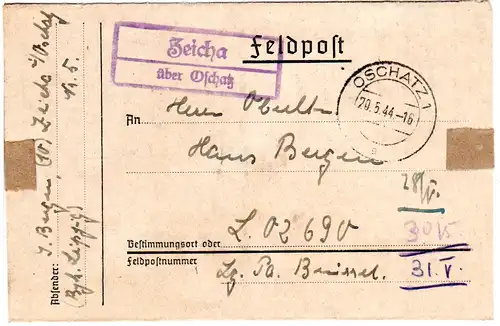 Zeicha
über Oschatz
Feldpost
OSCHATZ 1
29.5.44.-16
a
An Herrn Oberltn.
Hans Bergen
28/V.
L. 02690
30/5
Bestimmungsort oder
Feldpostnummer Lg. Pa. Brüssel.
31.V.
Absender: J. Bergen, (10) Zeicha ü/Oschatz
(Bzk. Leipzig) N. 5.